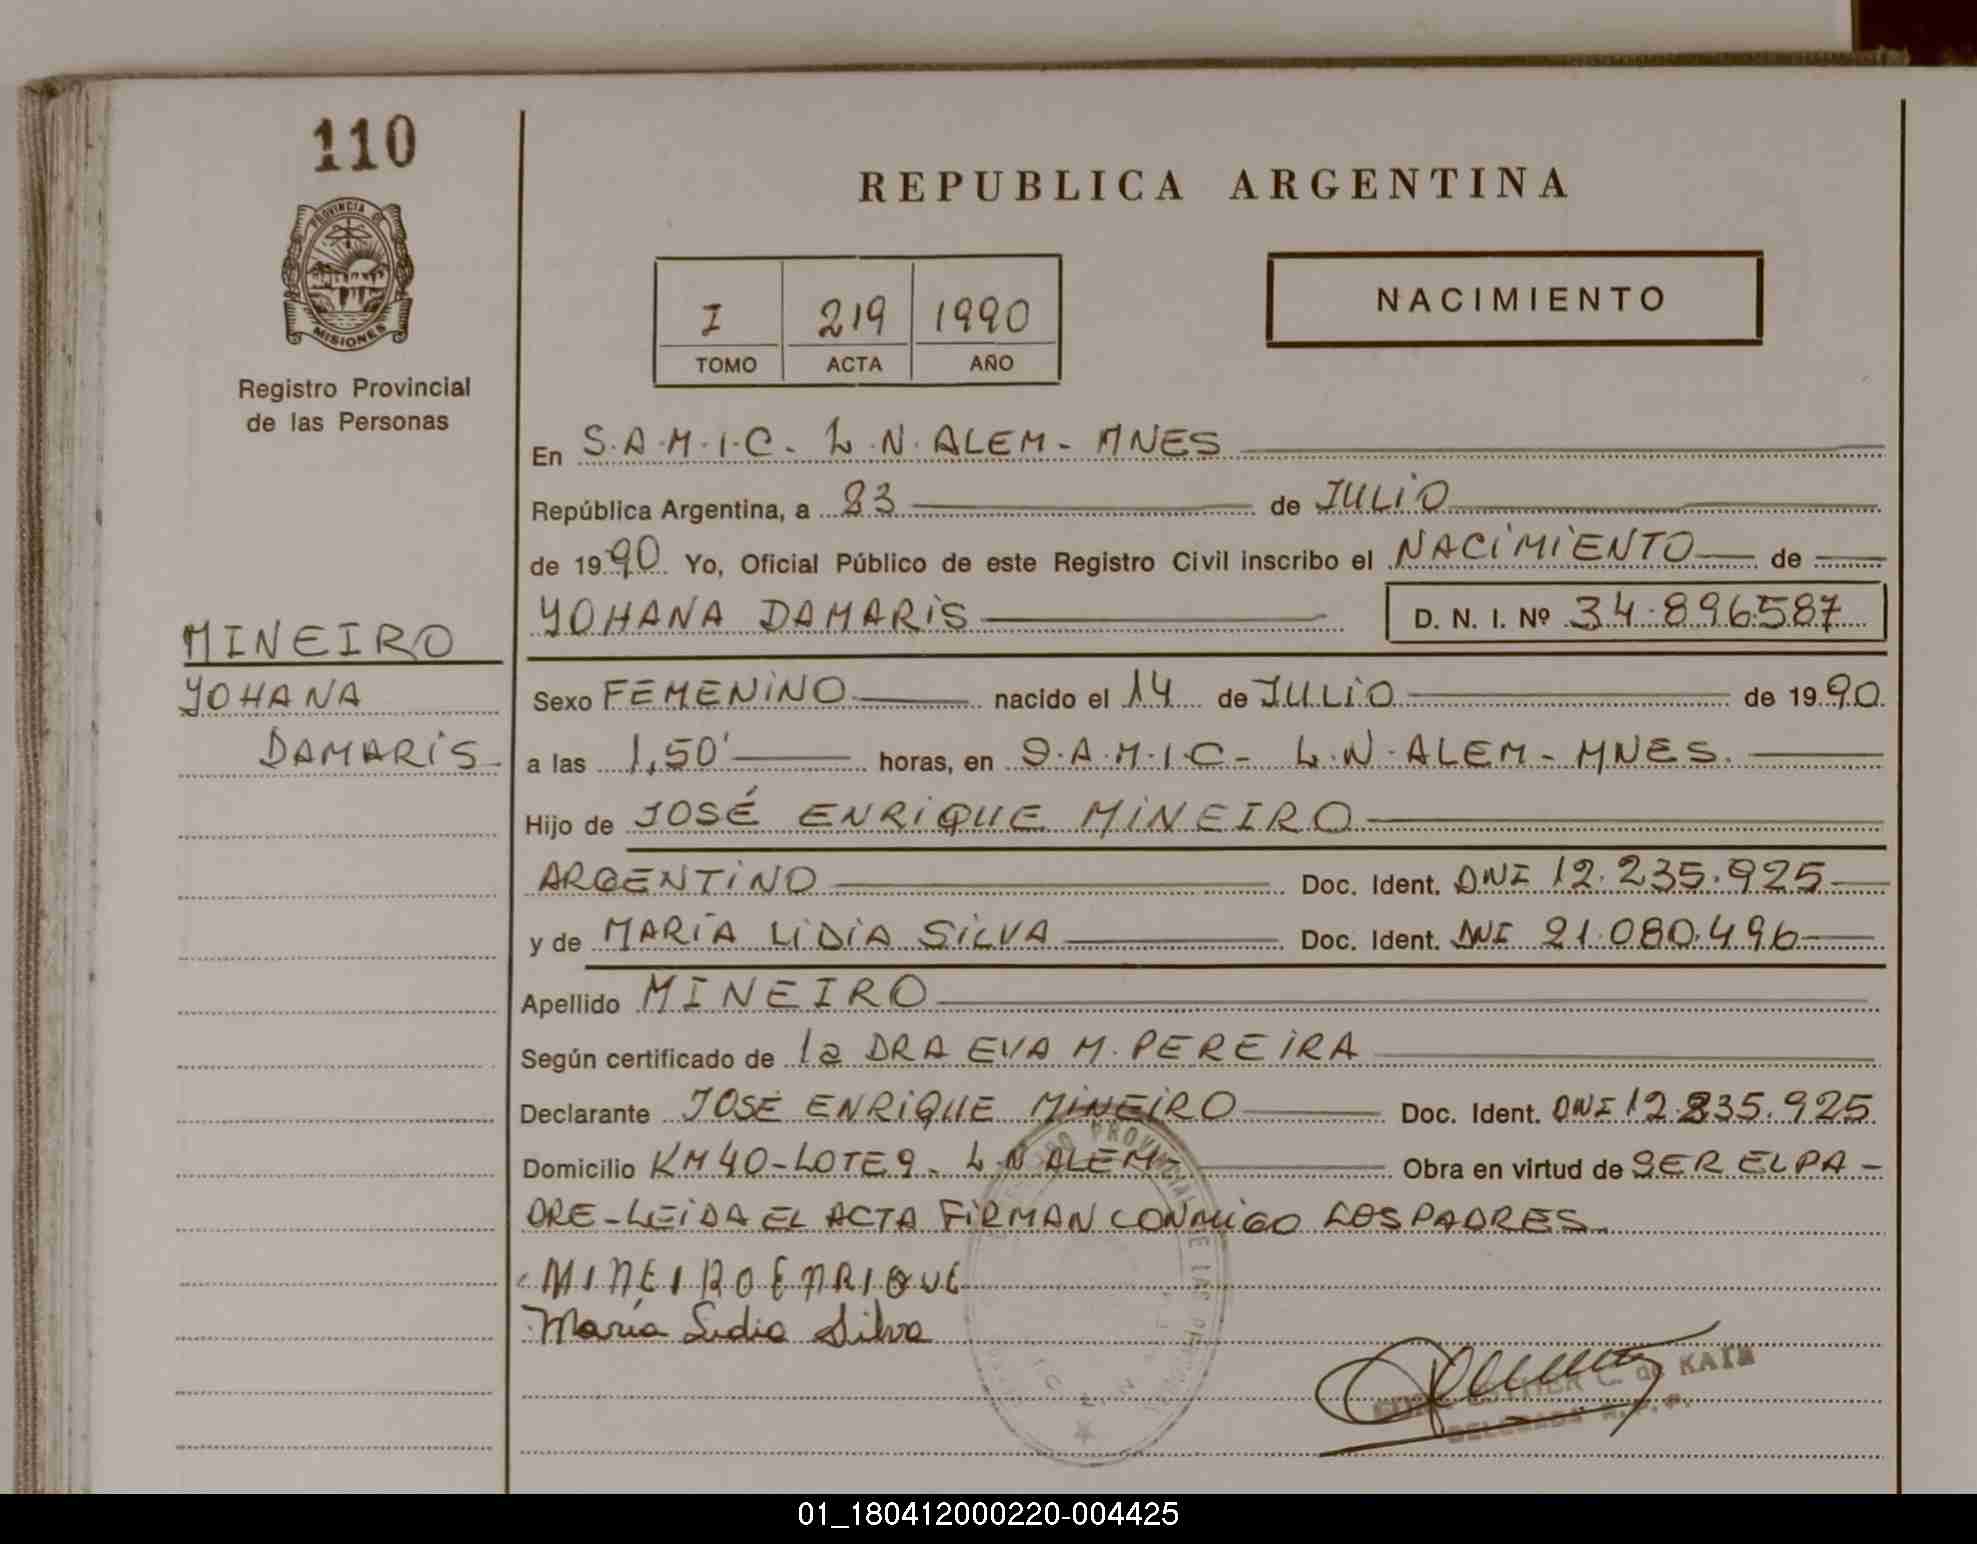 110
REPUBLICA ARGENTINA
PROVINCIA DE
MISIONES
I 219 1990
TOMO ACTA AÑO
NACIMIENTO
Registro Provincial
de las Personas
En S.A.M.I.C- L.N.ALEM- MNES
República Argentina, a 23 de JULIO
de 1990 Yo, Oficial Público de este Registro Civil inscribo el NACIMIENTO de
YOHANA DAMARIS D. N. I. Nº 34.896587
MINEIRO
YOHANA
DAMARIS
Sexo FEMENINO nacido el 14 de JULIO de 1990
a las 1,50' horas, en S.A.M.I.C- L.N.ALEM- MNES.
Hijo de JOSÉ ENRIQUE MINEIRO
ARGENTINO Doc. Ident. DNI 12.235.925
y de MARÍA LIDIA SILVA Doc. Ident. DNI 21.080.496
Apellido MINEIRO
Según certificado de la DRA EVA M. PEREIRA
Declarante JOSÉ ENRIQUE MINEIRO Doc. Ident. DNI 12.235.925
Domicilio KM40-LOTE9- L.N ALEM- Obra en virtud de SER EL PA-
DRE-LEIDA EL ACTA FIRMAN CONMIGO LOS PADRES
MINEIRO ENRIQUE
María Lidia Silva
ESTHER C. de KAIN
DELEGADA R.P.P.
01_180412000220-004425